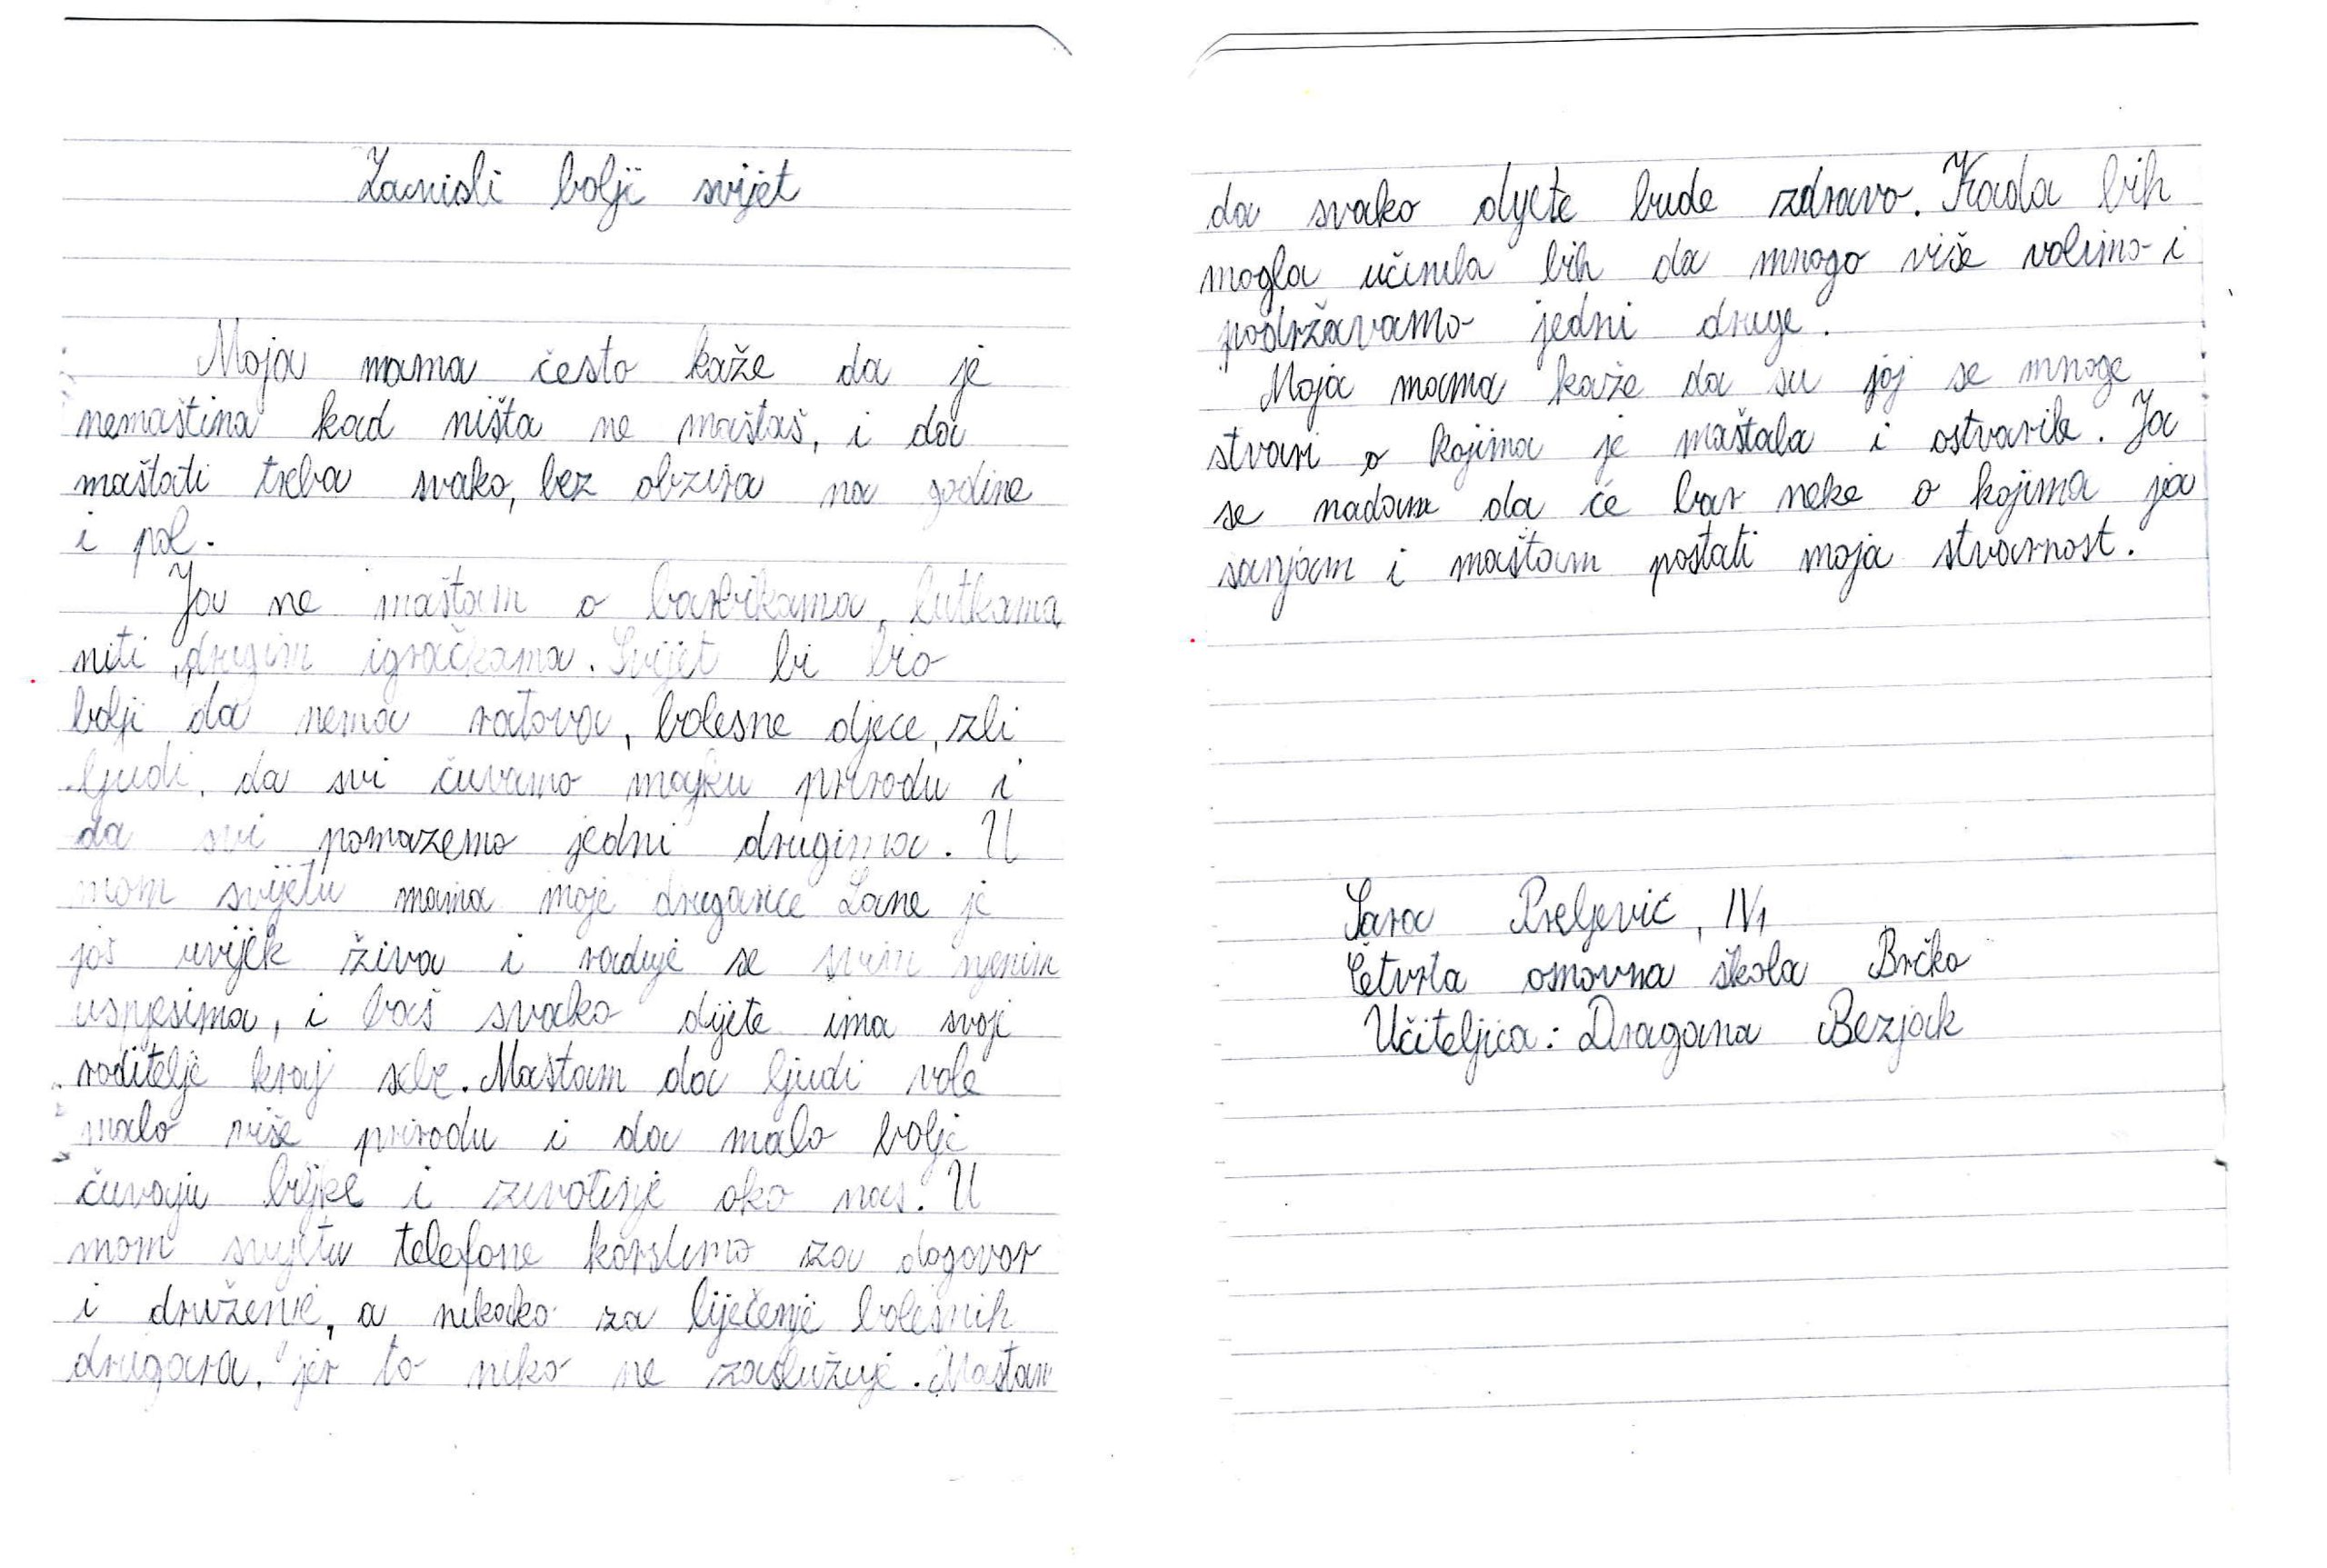 Zamisli bolji svijet
Moja mama često kaže da je
nemaština kad ništa ne maštaš, i da
maštati treba svako, bez obzira na godine
i pol.
Ja ne maštam o barbikama, lutkama,
niti drugim igračkama. Svijet bi bio
bolji da nema ratova, bolesne djece, zli
ljudi, da svi čuvamo majku prirodu i
da svi pomazemo jedni drugima. U
mom svijetu mama moje drugarice Lane je
još uvijek živa i raduje se svim njenim
uspjesima, i baš svako dijete ima svoje
roditelje kraj sebe. Maštam da ljudi vole
malo više prirodu i da malo bolje
čuvaju biljke i zivotinje oko nas. U
mom svijetu telefone koristimo za dogovor
i druženje, a nikako za liječenje bolesnih
drugara, jer to niko ne zaslužuje. Maštam
da svako dijete bude zdravo. Kada bih
mogla učinila bih da mnogo više volimo i
podržavamo jedni druge.
Moja mama kaže da su joj se mnoge
stvari o kojima je maštala i ostvarile. Ja
se nadam da će bar neke o kojima ja
sanjam i maštam postati moja stvarnost.
Sara Preljević, IV1
Četvrta osnovna škola Brčko
Učiteljica: Dragana Bezjak